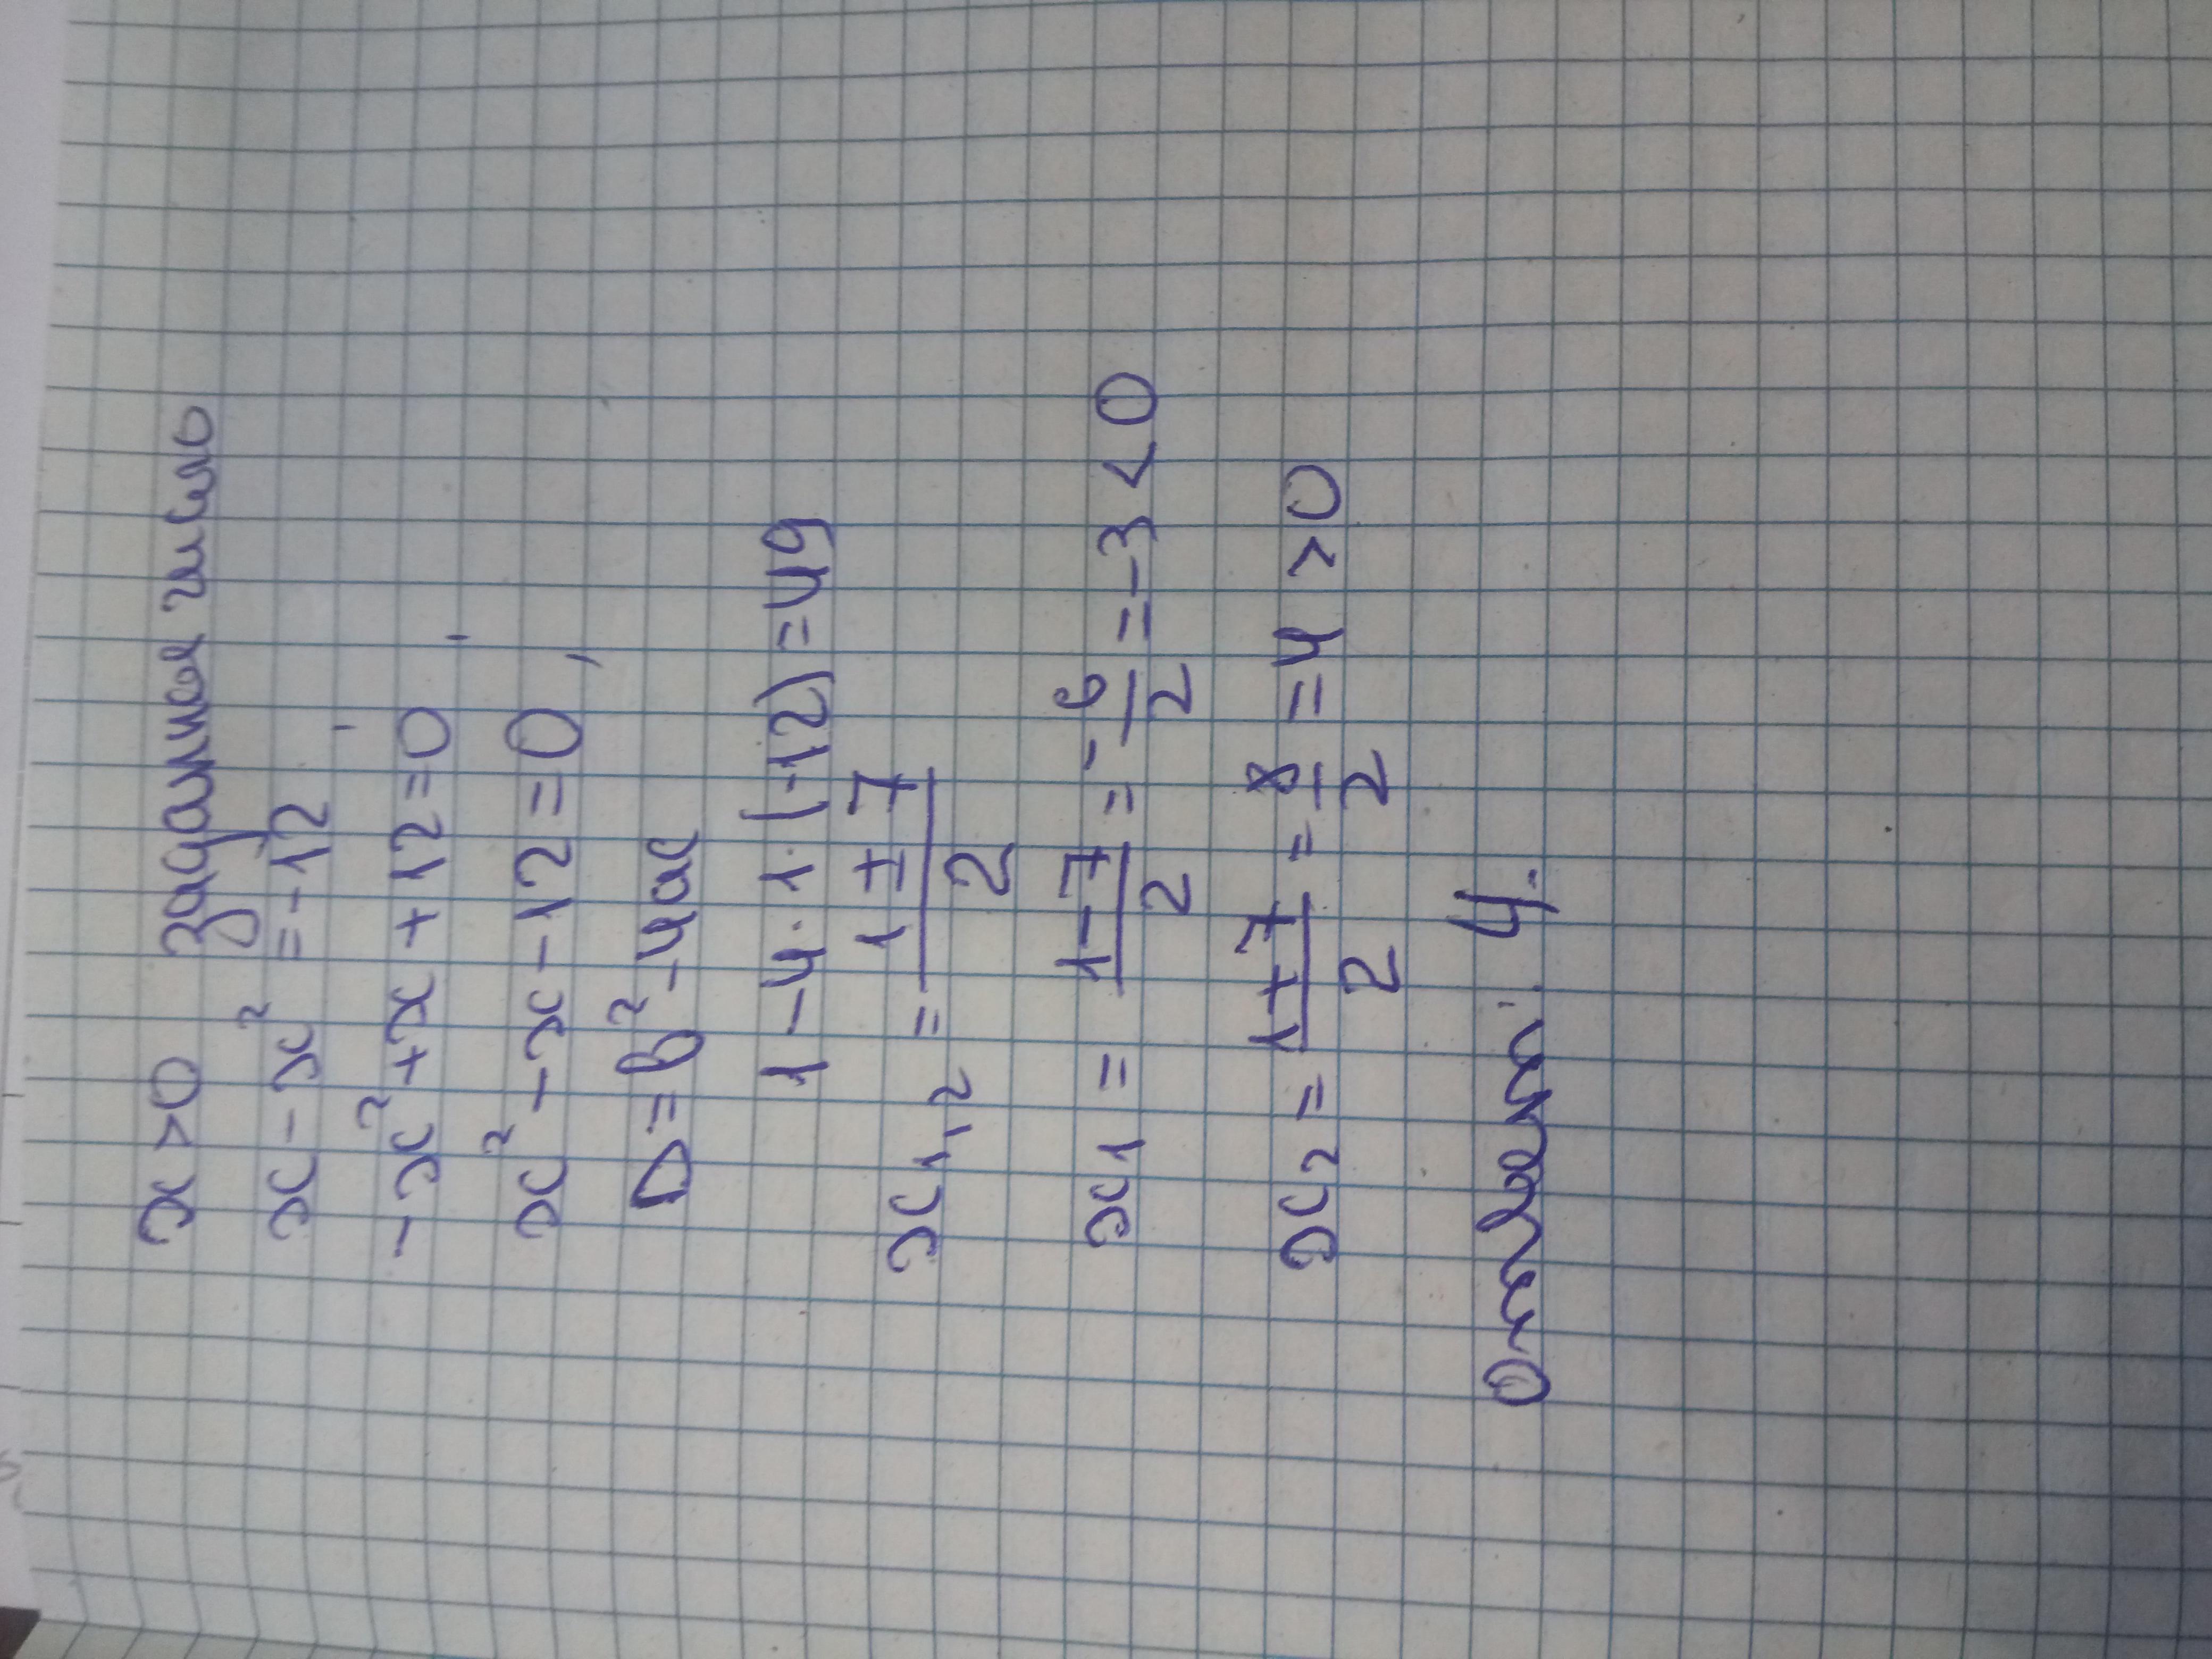 x > 0 заданное число
x - x² = -12
-x² + x + 12 = 0
x² - x - 12 = 0,
D = b² - 4ac
1 - 4 · 1 · (-12) = 49
x₁,₂ = (1 ± 7)/2
x₁ = (1 - 7)/2 = -6/2 = -3 < 0
x₂ = (1 + 7)/2 = 8/2 = 4 > 0
Ответ: 4.